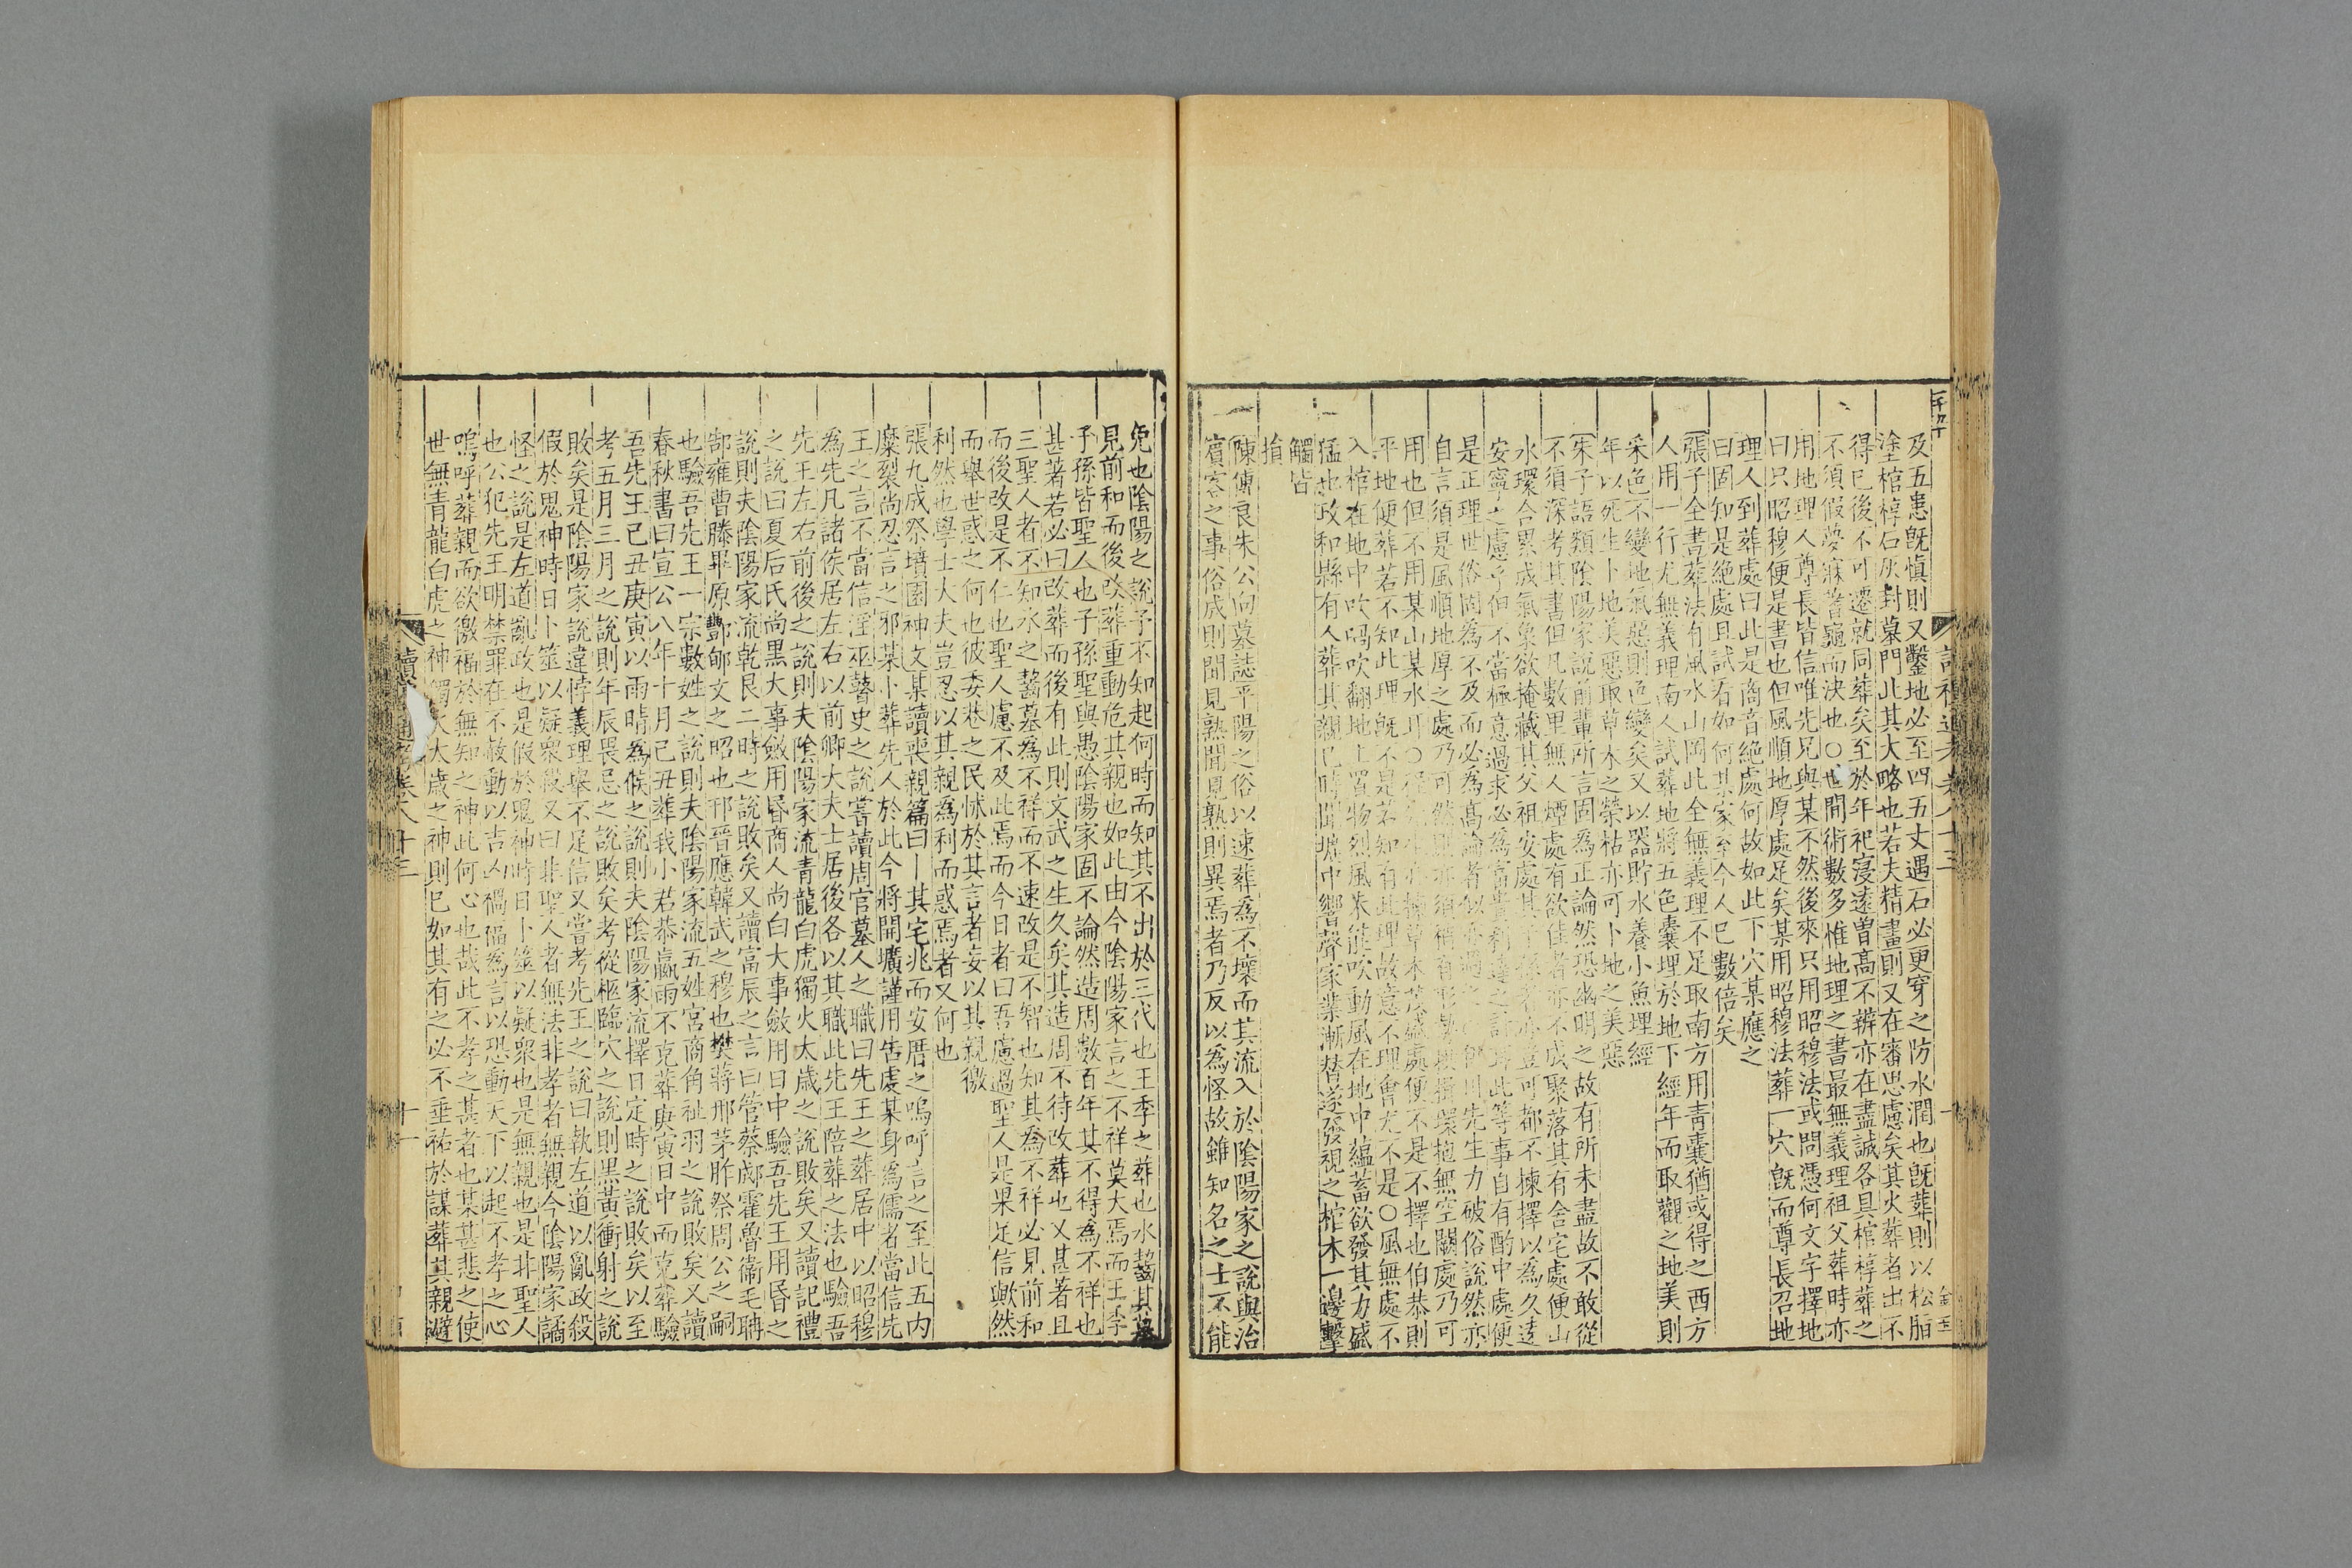 及五患既慎則又鑿地必至四五丈遇石必更穿之防水潤也既葬則以松脂
塗棺椁石灰封墓門此其大略也若夫精畫則又在審思慮矣其火葬者出不
得已後不可遷就同葬矣至於年祀寖遠曾高不辨亦在盡誠各具棺椁葬之
不須假夢寐蓍龜而決也○世間術數多惟地理之書最無義理祖父葬時亦
用地理人尊長皆信唯先兄與某不然後來只用昭穆法或問憑何文字擇地
曰只昭穆便是書也但風順地厚處足矣某用昭穆法葬一穴既而尊長召地
理人到葬處曰此是商音絕處何故如此下穴某應之
曰固知是絕處且試看如何某家至今人已數倍矣
張子全書葬法有風水山岡此全無義理不足取南方用青囊猶或得之西方
人用一行尤無義理南人試葬地將五色囊埋於地下經年而取觀之地美則
采色不變地氣惡則色變矣又以器貯水養小魚埋經
年以死生卜地美惡取草木之榮枯亦可卜地之美惡
朱子語類陰陽家說前輩所言固為正論然恐幽明之故有所未盡故不敢從
不須深考其書但凡數里無人煙處有欲住者亦不成聚落其有舍宅處便山
水環合畧成氣象欲掩藏其父祖安處其子孫者亦豈可都不揀擇以為久遠
安寧之慮乎但不當極意過求必為富貴利達之計耳此等事自有酌中處便
是正理世俗固為不及而必為高論者似亦過之○伊川先生力破俗說然亦
自言須是風順地厚之處乃可然則亦須稍有形勢拱揖環抱無空闕處乃可
用也但不用某山某水耳○
平地便葬若不知此理既不是若知有此理故意不理會尤不是○風無處不
入棺在地中吹嗚吹翻地上置物烈風來能吹動風在地中蘊蓄欲發其力盛
猛也政和縣有人葬其親已時聞壙中響聲家業漸替遂發視之棺木一邊擊
觸皆
損
陳傅良朱公向墓誌平陽之俗以速葬為不壞而其流入於陰陽家之說與治
賓客之事俗成則聞見熟聞見熟則異焉者乃反以為怪故雖知名之士不能
免也陰陽之說予不知起何時而知其不出於三代也王季之葬也水齧其墓
見前和而後改葬重動危其親也如此由今陰陽家言之不祥莫大焉而王季
子孫皆聖人也子孫聖與愚陰陽家固不論然造周數百年其不得為不祥也
甚著若必曰改葬而後有此則文武之生久矣其造周不待改葬也又甚著且
三聖人者不知水之齧墓為不祥而不速改是不智也知其為不祥必見前和
而後改是不仁也聖人慮不及此焉而今日者曰吾慮過聖人是果足信歟然
而舉世惑之何也彼委巷之民怵於其言者妄以其親徼
利然也學士大夫豈忍以其親為利而惑焉者又何也
張九成祭墳園神文某讀喪親篇曰卜其宅兆而安厝之嗚呼言之至此五内
糜裂尚忍言之邪某卜葬先人於此今將開壙謹用告處某身為儒者當信先
王之言不當信淫巫瞽史之說嘗讀周官墓人之職曰先王之葬居中以昭穆
為先凡諸侯居左右以前卿大夫士居後各以其職此先王陪葬之法也驗吾
先王左右前後之說則夫陰陽家流青龍白虎獨火太歲之說敗矣又讀記禮
之說曰夏后氏尚黑大事斂用昏商人尚白大事斂用日中驗吾先王用昏之
說則夫陰陽家流乾艮二時之說敗矣又讀富辰之言曰管蔡郕霍魯衛毛聃
郜雍曹滕畢原酆郇文之昭也邘晉應韓武之穆也樊蔣邢茅胙祭周公之嗣
也驗吾先王一宗數姓之說則夫陰陽家流五姓宮商角祉羽之說敗矣又讀
春秋書曰宣公八年十月己丑葬我小君恭嬴雨不克葬庚寅日中而克葬驗
吾先王己丑庚寅以雨晴為候之說則夫陰陽家流擇日定時之說敗矣以至
考五月三月之說則年辰畏忌之說敗矣考從柩臨穴之說則黑黃衝射之說
敗矣是陰陽家說違悖義理舉不足信又嘗考先王之說曰執左道以亂政殺
假於鬼神時日卜筮以疑衆殺又曰非聖人者無法非孝者無親今陰陽家譎
怪之說是左道亂政也是假於鬼神時日卜筮以疑衆也是無親也是非聖人
也公犯先王明禁罪在不赦動以吉凶禍福為言以恐動天下以起不孝之心
嗚呼葬親而欲徼福於無知之神此何心也哉此不孝之甚者也某甚悲之使
世無青龍白虎之神獨火大歲之神則已如其有之必不垂祐於謀葬其親避